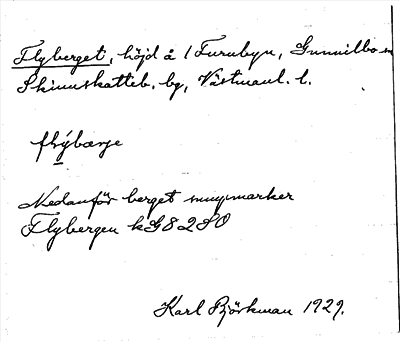 Flyberget, höjd å 1 Furubyn, Gunnilbo sn
Skinnskatteb. bg, Västmanl. l.
flýbærje
Nedanför berget myrmarker
Flybergen kG8280
Karl Björkman 1929.